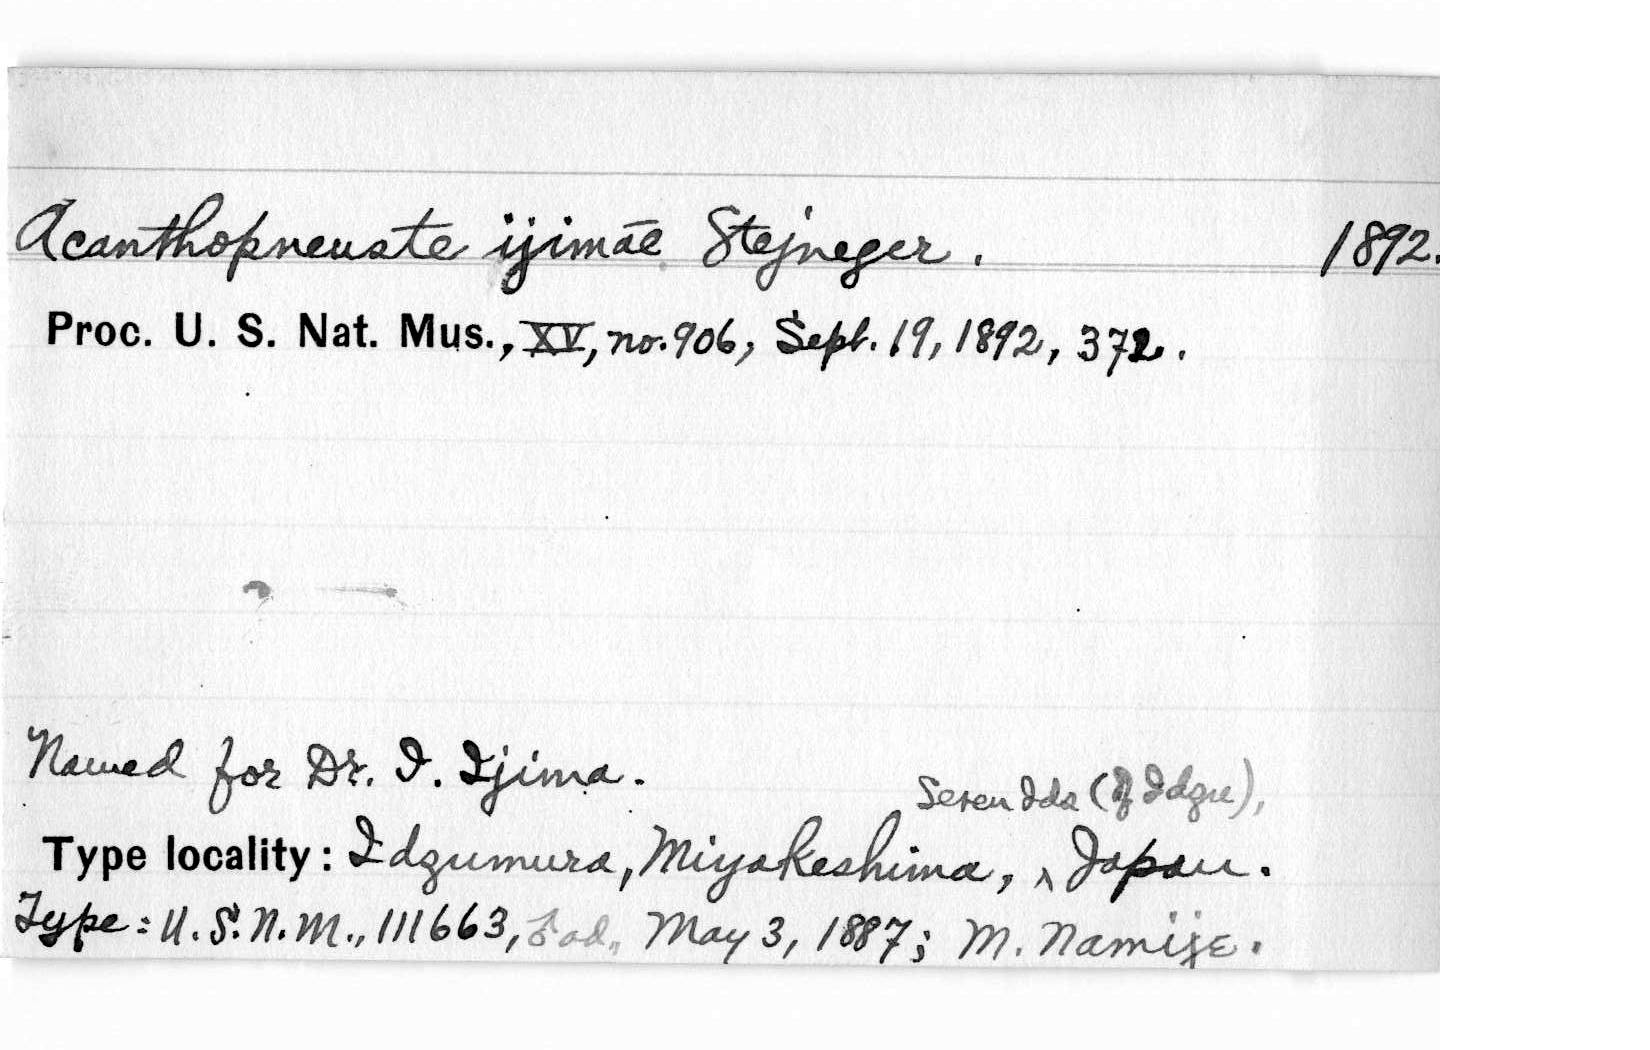 Acanthopneuste ijimae Stejneger. 1892.
Proc. U. S. Nat. Mus., XV, no. 906, Sept. 19, 1892, 372.
Named for Dr. I. Ijima.
Seven Ids (of Idzu),
Type locality: Idzumura, Miyakeshima, ‸ Japan.
Type: U.S.N.M., 111663, ♂ ad., May 3, 1887; M. Namiye.